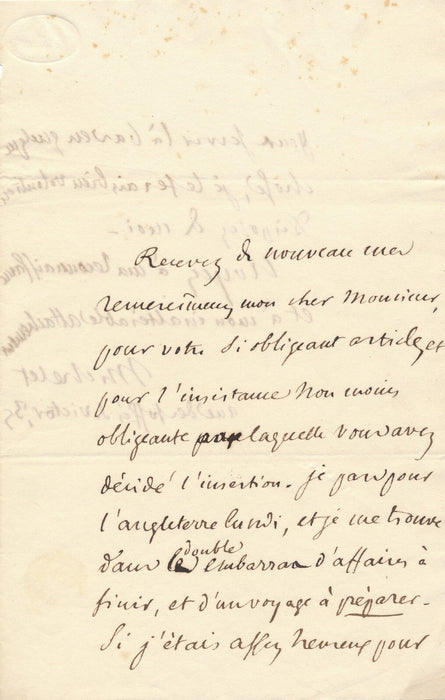 Recevez de nouveau mes
remerciemens mon cher Monsieur,
pour votre si obligeant article, et
pour l'insistance non moins
obligeante par laquelle vous avez
décidé l'insertion. je pars pour
l'angleterre lundi, et je me trouve
dans le double embarras d'affaires à
finir, et d'un voyage à préparer.
Si j'étais assez heureux pour